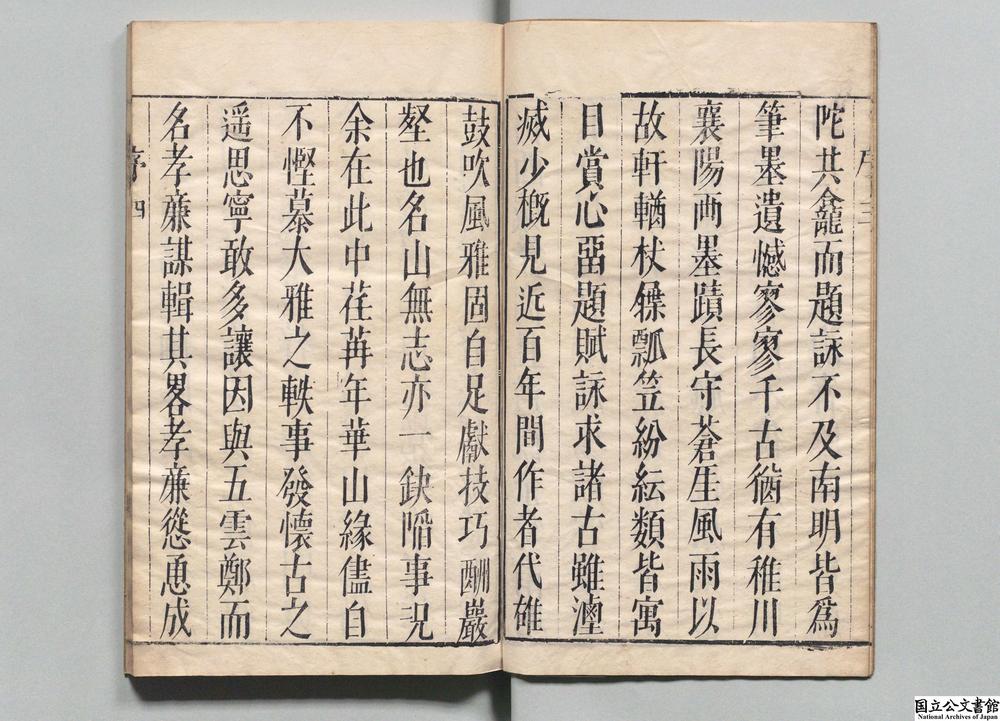 序三
陀共龕而題詠不及南明皆爲
筆墨遺憾寥寥千古猶有稚川
襄陽兩墨蹟長守蒼生風雨以
故軒輶杖屧瓢笠紛紜類皆寓
目賞心畱題賦詠求諸古雖湮
滅少槪見近百年間作者代雄
鼓吹風雅固自足獻技巧酬巖
壑也名山無志亦一缺陷事況
余在此中荏苒年華山緣儘自
不慳慕大雅之軼事發懷古之
遥思寧敢多讓因與五雲鄭而
名孝亷謀輯其畧孝亷慫恿成
序四
国立公文書館
National Archives of Japan